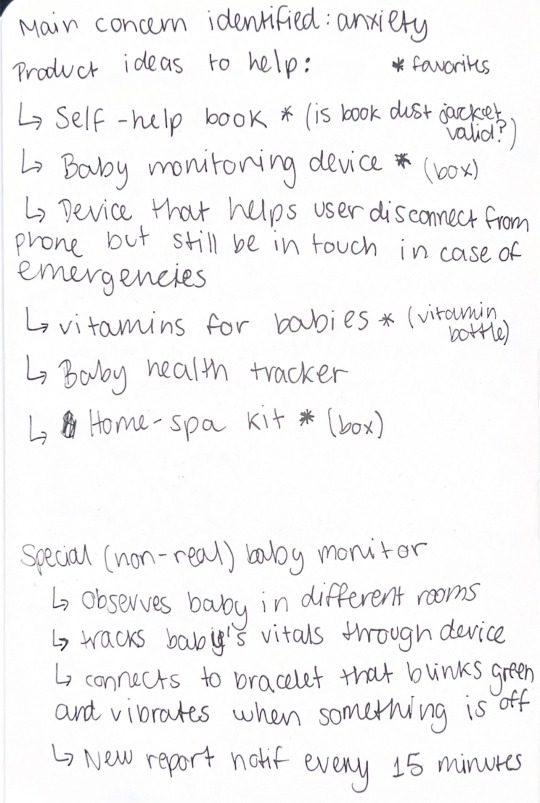 Main concern identified: anxiety
Product ideas to help: * favorites
↳ Self-help book * (is book dust jacket valid?)
↳ Baby monitoring device * (box)
↳ Device that helps user disconnect from
phone but still be in touch in case of
emergencies
↳ vitamins for babies * (vitamin bottle)
↳ Baby health tracker
↳ Home-spa kit * (box)
Special (non-real) baby monitor
↳ Observes baby in different rooms
↳ tracks baby's vitals through device
↳ connects to bracelet that blinks green
and vibrates when something is off
↳ New report notif every 15 minutes